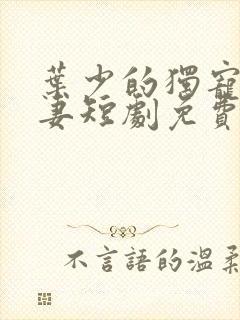 葉少的獨寵
妻短劇免費
不言語的溫柔